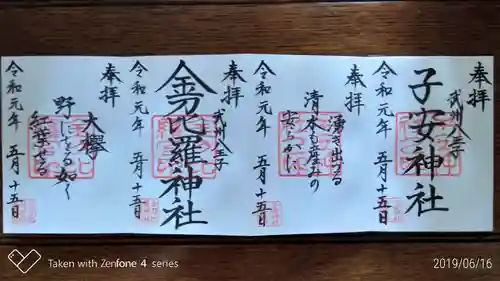 奉拝
武州八王子
子安神社
令和元年 五月十五日
奉拝
湧き出づる
清水も産みの
安らかに
令和元年 五月十五日
奉拝
武州八王子
金刀比羅神社
令和元年 五月十五日
奉拝
大欅
野に
紅葉せる
令和元年 五月十五日
Taken with Zenfone 4 series
2019/06/16